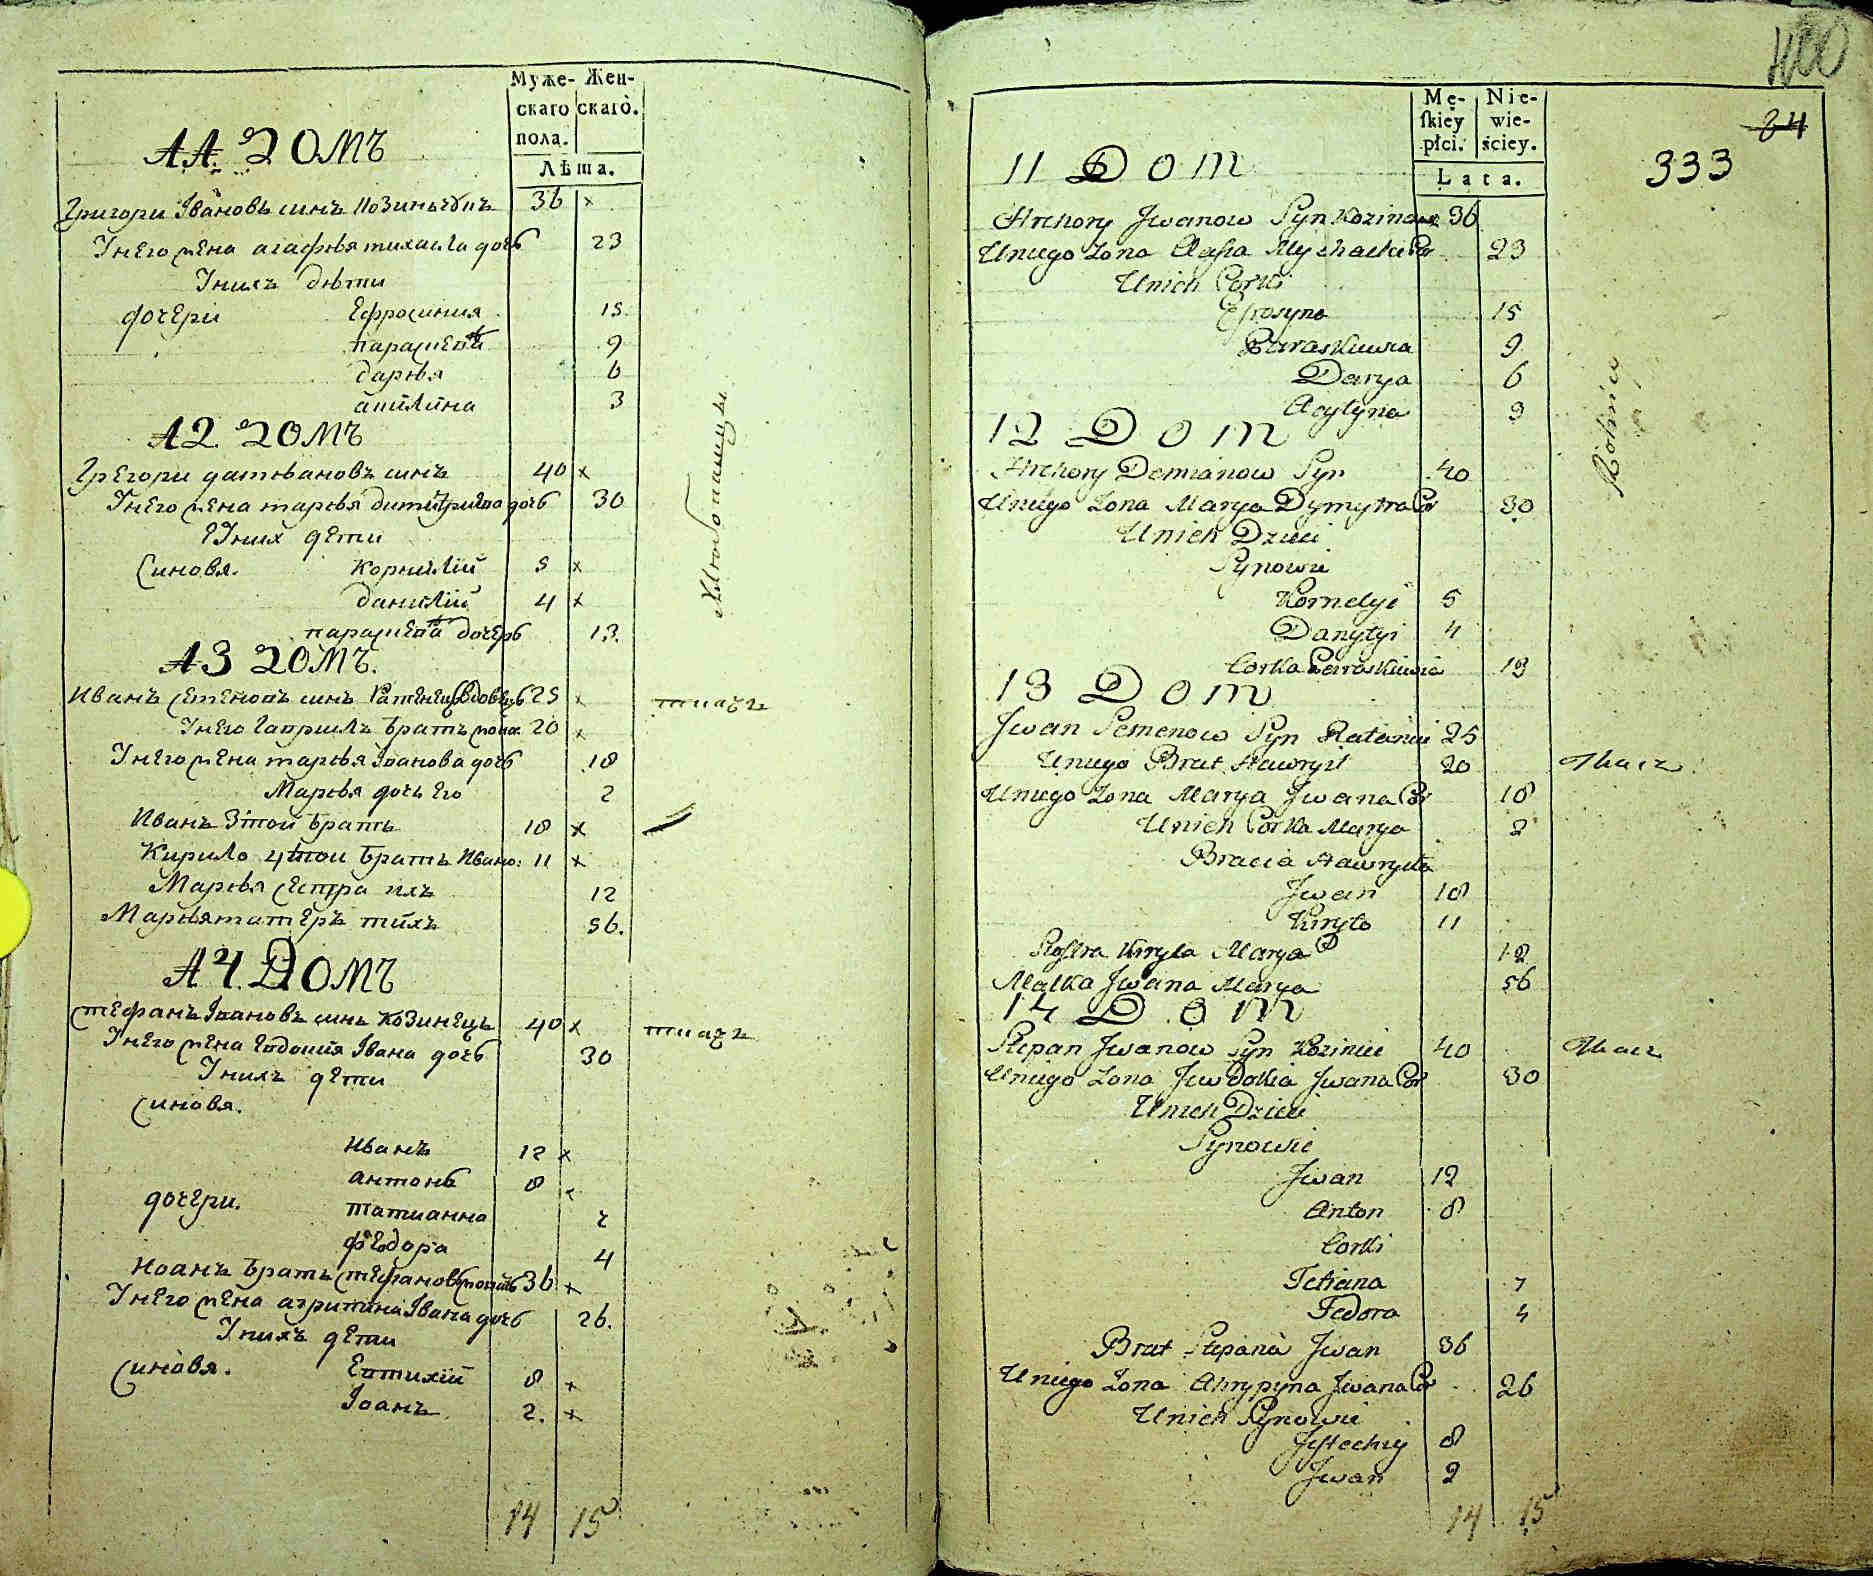 Муже-
скаго
пола.
Жен-
скагò.
Лѣта.
11. ДОМЪ
Григори Івановъ синъ 36 ×
Унего жена агафѣя михаила дочъ 23
Унихъ дѣти
дочери Ефросиния 15
параскева 9
дарѣя 6
3
12. ДОМЪ
Грегори синъ 40 ×
Унего жена марѣя димитриева дочъ 30
Уних дети
Синовя. Корнилїй 5 ×
данилїй 4 ×
параскева дочерь 13.
Хлѣбопашцы
13 ДОМЪ.
Иванъ Семеновъ синъ 25 × ткачъ
Унего Гаврилъ братъ 20 ×
Унего жена марѣя Іванова дочъ 18
Марѣя дочь Его 2
Иванъ 3той братъ 18 ×
Кирило 4той братъ Ивано: 11 ×
Марѣя Сестра ихъ 12
Марѣя матеръ тихъ 56.
14. ДОМЪ
Стефанъ Івановъ синъ Козинецъ 40 × ткачъ
Унего жена Евдокия Івана дочъ 30
Унихъ дети
Синовя.
Иванъ 12 ×
антонъ 8 ×
дочери. татианна 7
федора 4
Иоанъ братъ Стефановъ 36 ×
Унего жена агрипина Івана дочъ 26.
Унихъ дети
Синовя. Евтихїй 8 ×
Іоанъ 2. ×
14 15
400
Mę-
skiey
płci.
Nie-
wie-
ściey.
Lata.
84
333
11 Dom
Hrehory Jwanow Syn 36
Uniego Zona Agafia Mychaela Cor 23
Unich Corki
Efrosyna 15
Paraskiewia 9
Darya 6
3
12 Dom
Hrehory Demianow Syn 40
Uniego Zona Marya Dymytra Cor 30
Unich Dzieci
Synowie
Kornelyi 5
Danyłyi 4
Corka Paraskiewia 13
Rolnicy
13 Dom
Jwan Semenow Syn 25
Uniego Brat Hawrył 20 Tkacz
Uniego Zona Marya Jwana Cor 18
Unich Corka Marya 2
Bracia Hawryła
Jwan 18
Kiryło 11
Siostra Kiryła Marya 12
Matka Jwana Marya 56
14 Dom
Stepan Jwanow Syn Koziniec 40 Tkacz
Uniego Zona Jewdokia Jwana Cor 30
Unich Dzieci
Synowie
Jwan 12
Anton 8
Corki
Tetiana 7
Fedora 4
Brat Stepana Jwan 36
Uniego Zona Ahrypyna Jwana Cor 26
Unich Synowie
Jeftechiy 8
Jwan 2
14 15